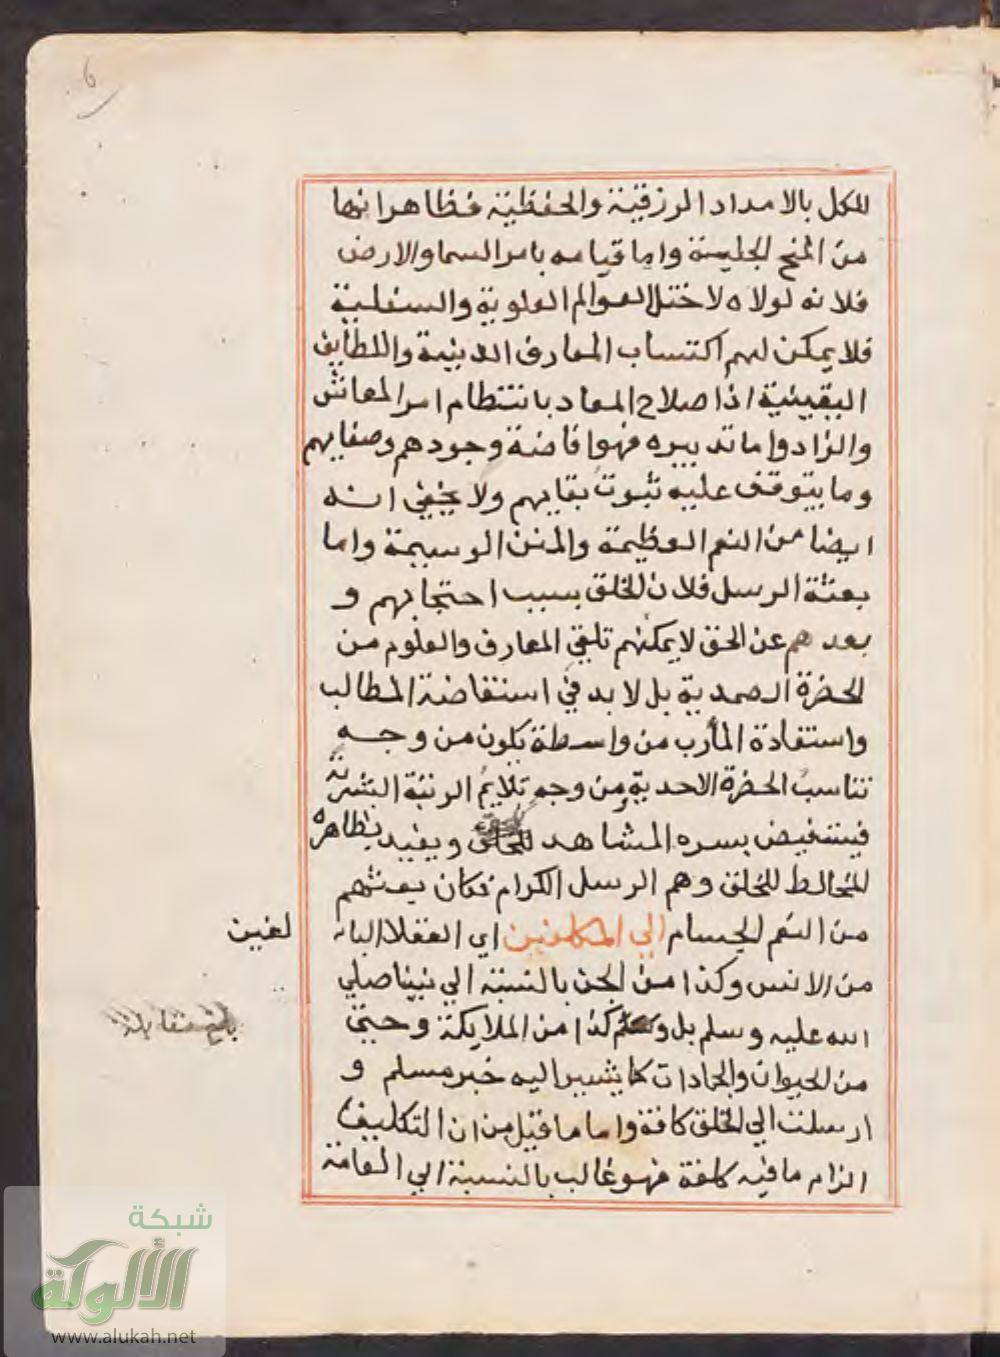 6
للكل بالامداد الرزقية والحفظية فظاهر انها
من المنح الجليسة واما قيامه بامر السما والارض
فلانه لولاه لاختل العوالم العلوية والسفلية
فلا يمكن لهم اكتساب المعارف الدينية واللطايف
اليقينية اذا صلاح المعاد بانتظام امر المعاش
والزاد واما تدبيره فهو افاضة وجودهم وصفايهم
وما يتوقف عليه ثبوت بقايهم ولا يخفي انه
ايضا من النعم العظيمة والمنن الوسيمة واما
بعثة الرسل فلان الخلق بسبب احتجابهم و
بعدهم عن الحق لا يمكنهم تلقي المعارف والعلوم من
الحضرة الصمدية بل لا بد في استفاضة المطالب
واستفادة المأرب من واسطة يكون من وجه
تناسب الحضرة الاحدية ومن وجه تلايم الرتبة البشرية
فيستفيض بسره المشاهد للحق ويفيد بظاهره
المخالط للخلق وهم الرسل الكرام فكان بعثهم
من النعم الجسام الي المكلفين اي العقلا البا
لغين
من الانس وكذا من الجن بالنسبة الي نبينا صلي
الله عليه وسلم بل وكذا من الملايكة وحتي
بلغ مقابلة
من الحيوان والجمادات كما يشير اليه خبر مسلم و
ارسلت الي الخلق كافة واما ما قيل من ان التكليف
الزام ما فيه كلفة فهو غالب بالنسبة الي العامة
شبكة
الألوكة
www.alukah.net